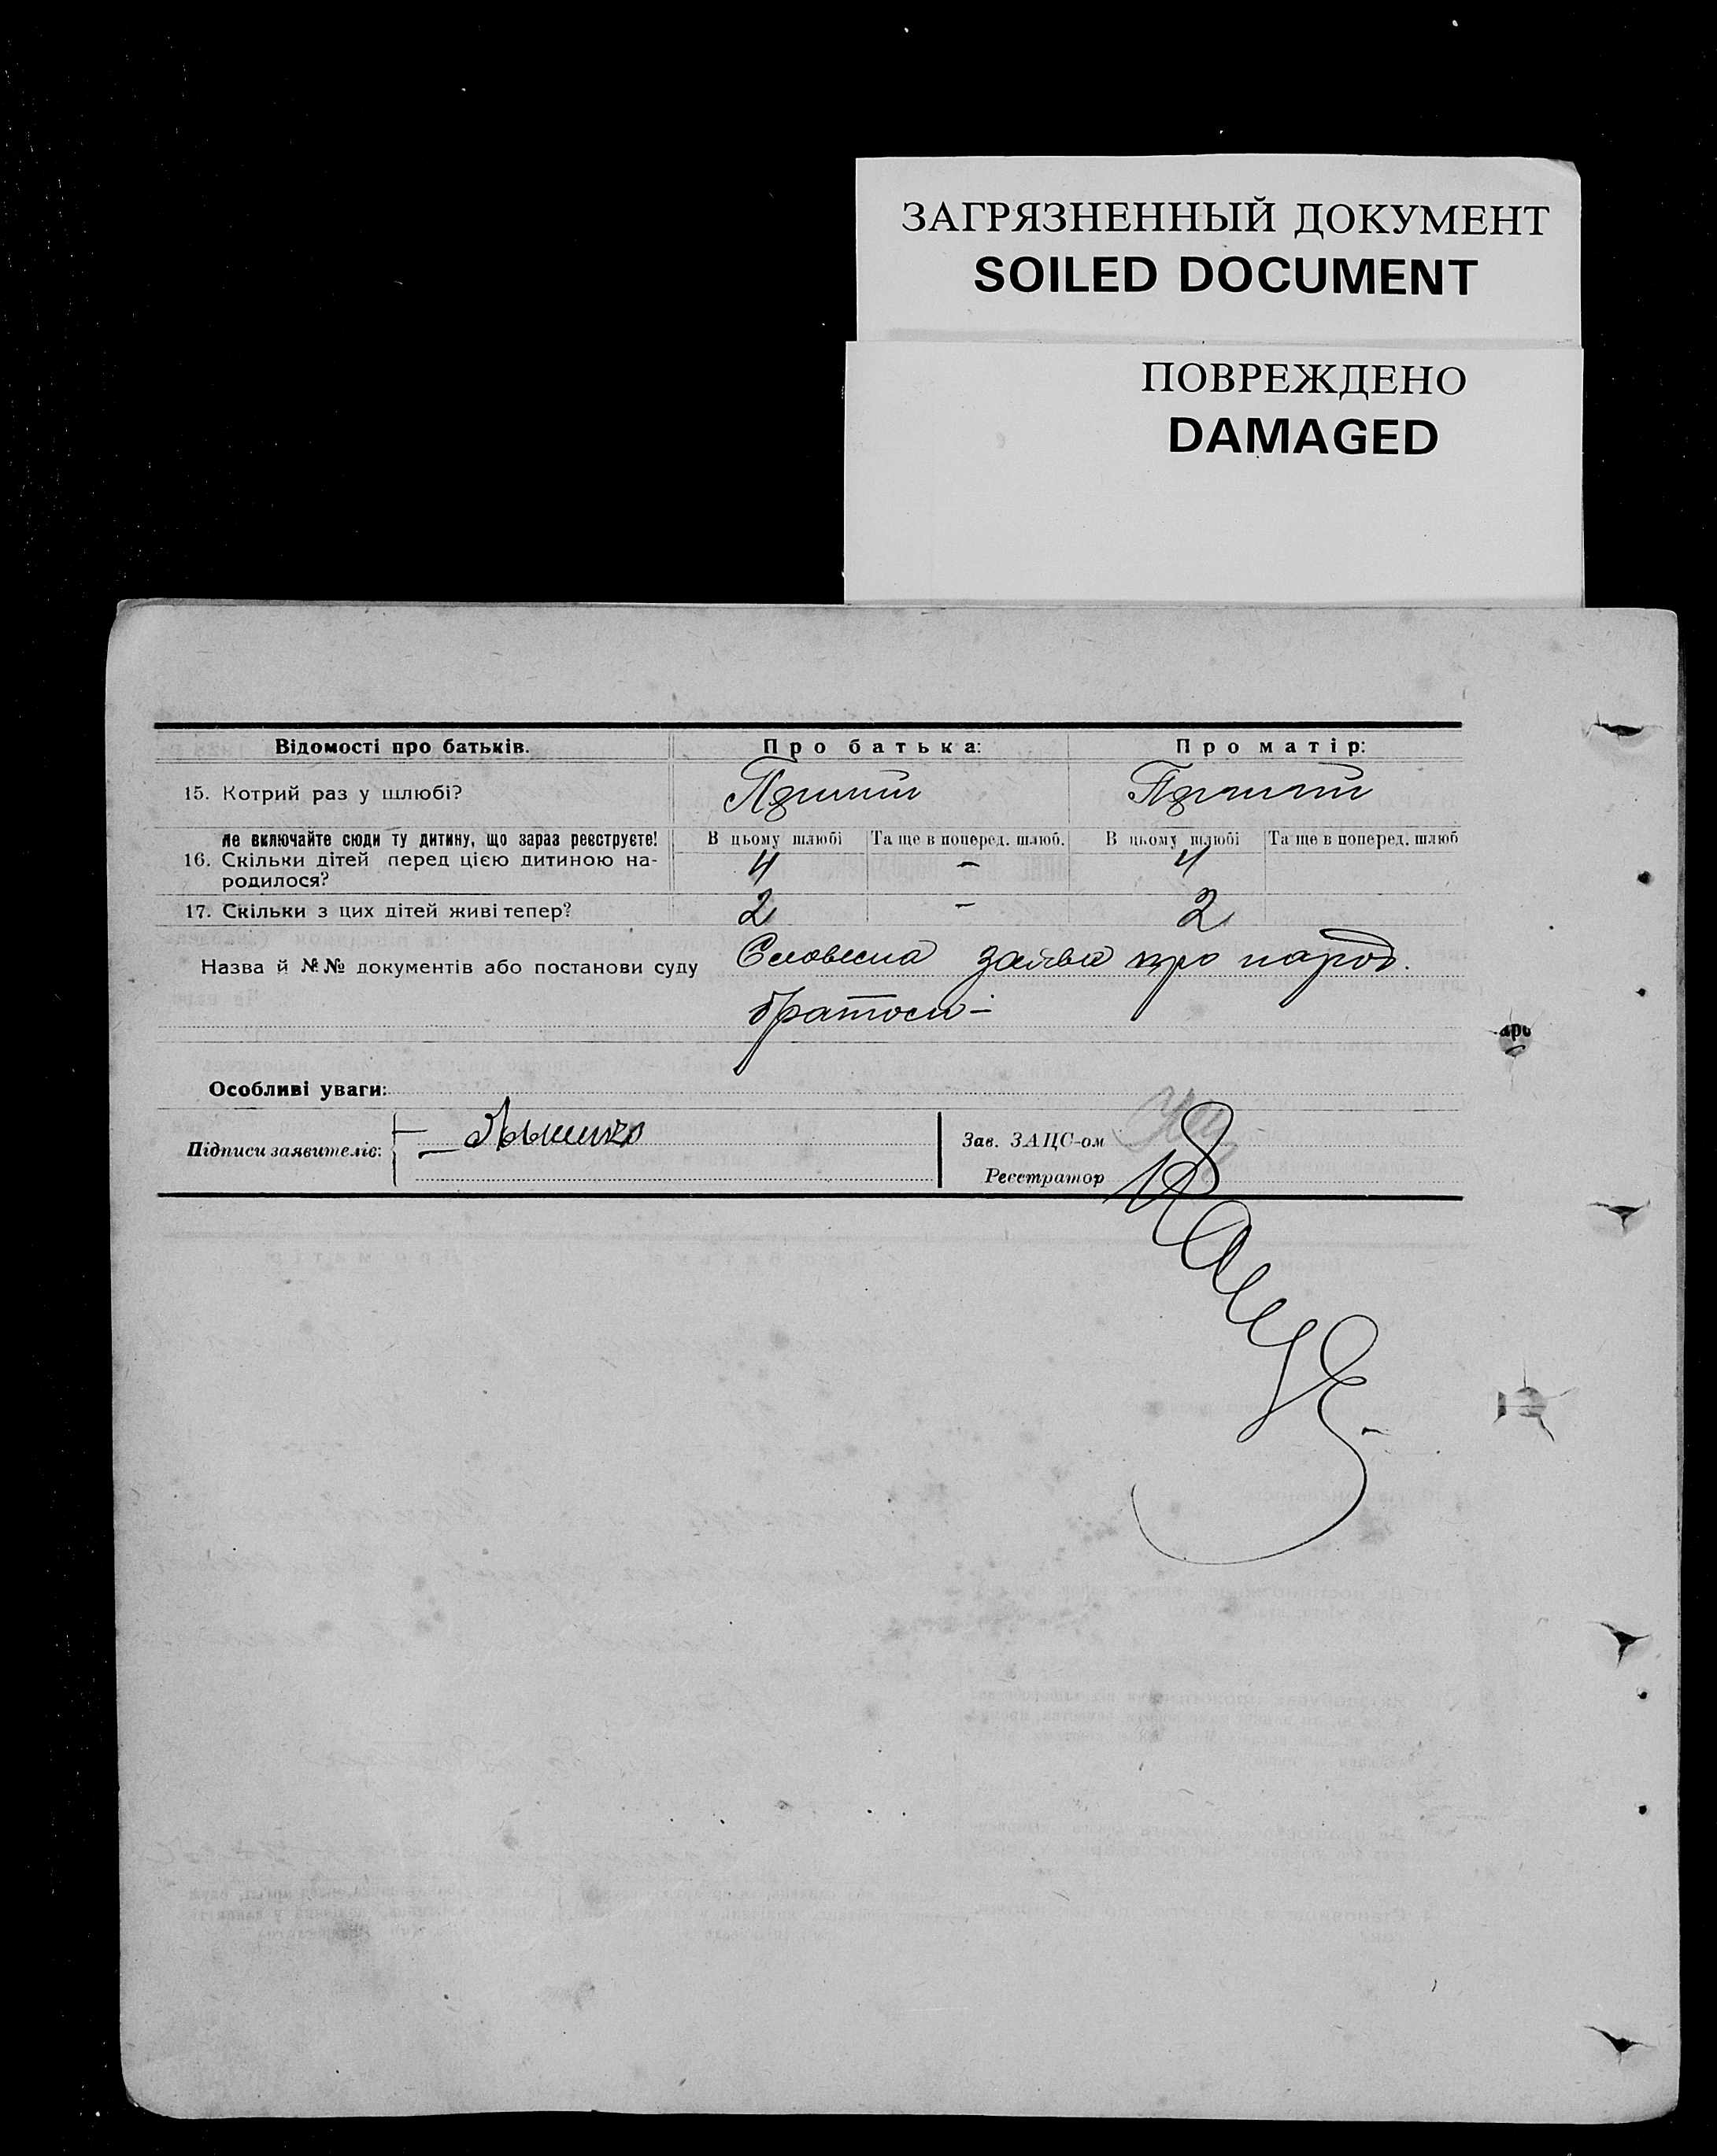 ЗАГРЯЗНЕННЫЙ ДОКУМЕНТ
SOILED DOCUMENT
ПОВРЕЖДЕНО
DAMAGED
Відомості про батьків. Про батька: Про матір:
15. Котрий раз у шлюбі?
Не включайте сюди ту дитину, що зараз реєструєте! В цьому шлюбі Та ще в поперед. шлюб. В цьому шлюбі Та ще в поперед. шлюб
16. Скільки дітей перед цією дитиною на- 4 – 4
родилося?
17. Скільки з цих дітей живі тепер? 2 – 2
Назва й №№ документів або постанови суду Словесна заява про народ.
Особливі уваги:
Підписи заявителів: Зав. ЗАЦС-ом
Реєстратор